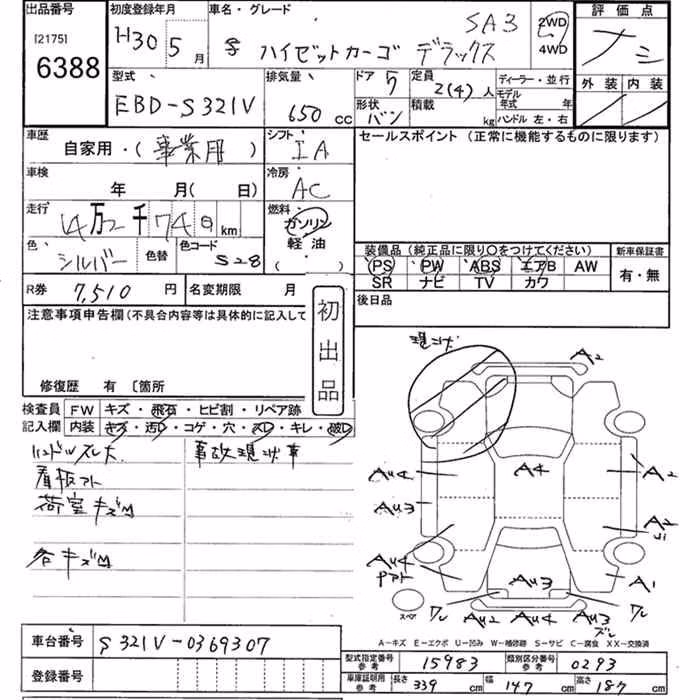 出品番号
[2175]
6388
初度登録年月
H30 5 月
車名・グレード
SA3
ハイゼットカーゴ デラックス
2WD
4WD
評価点
ナシ
外装 内装
型式
EBD-S321V
排気量
650 cc
ドア
5
形状
バン
定員
2(4)人
積載
kg
ディーラー・並行
モデル年式 年
ハンドル 左・右
車歴
自家用・(事業用)
シフト
IA
車検
年 月( 日)
冷房
AC
走行
14万2千740 km
燃料
ガソリン
軽油
( )
色
シルバー
色替
色コード
S28
R券
7,510 円
名変期限 月
セールスポイント (正常に機能するものに限ります)
装備品 (純正品に限り○をつけてください)
PS PW ABS エアB AW
SR ナビ TV カワ
新車保証書
有・無
後日品
注意事項申告欄(不具合内容等は具体的に記入して
修復歴 有 〔箇所
初出品
検査員記入欄
FW キズ・飛石・ヒビ割・リペア跡
内装 キズ・汚レ・コゲ・穴・スレ・キレ・破レ
ハンドルズレ大
事故現状車
看板アト
荷室キズM
各キズM
現状
A2
AU4
A4
A2
AU3
A2
AU4
Pアト
AU3
A1
スペア
ワレ
AU2
AU4
AU3
ズレ
ワレ
A-キズ E-エクボ U-凹み W-補修跡 S-サビ C-腐食 XX-交換済
車台番号
S321V-0369307
登録番号
型式指定番号参考
15983
類別区分番号参考
0293
車庫証明用参考
長さ 339 cm
幅 147 cm
高さ 187 cm